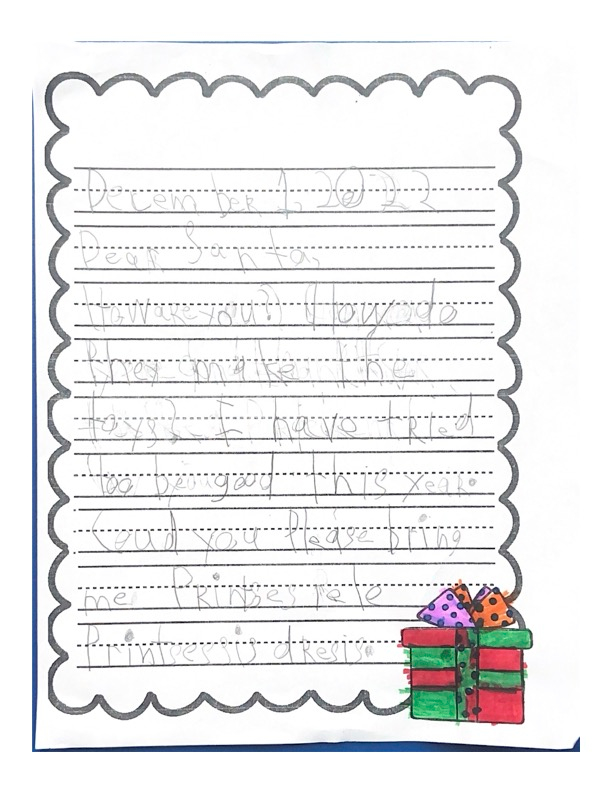 December 1, 2022
Dear Santa,
How are you? How do
they make the
toys? I have tried
Too be good this year.
Coud you Please bring
me Printses rele
Printsessis dresis.